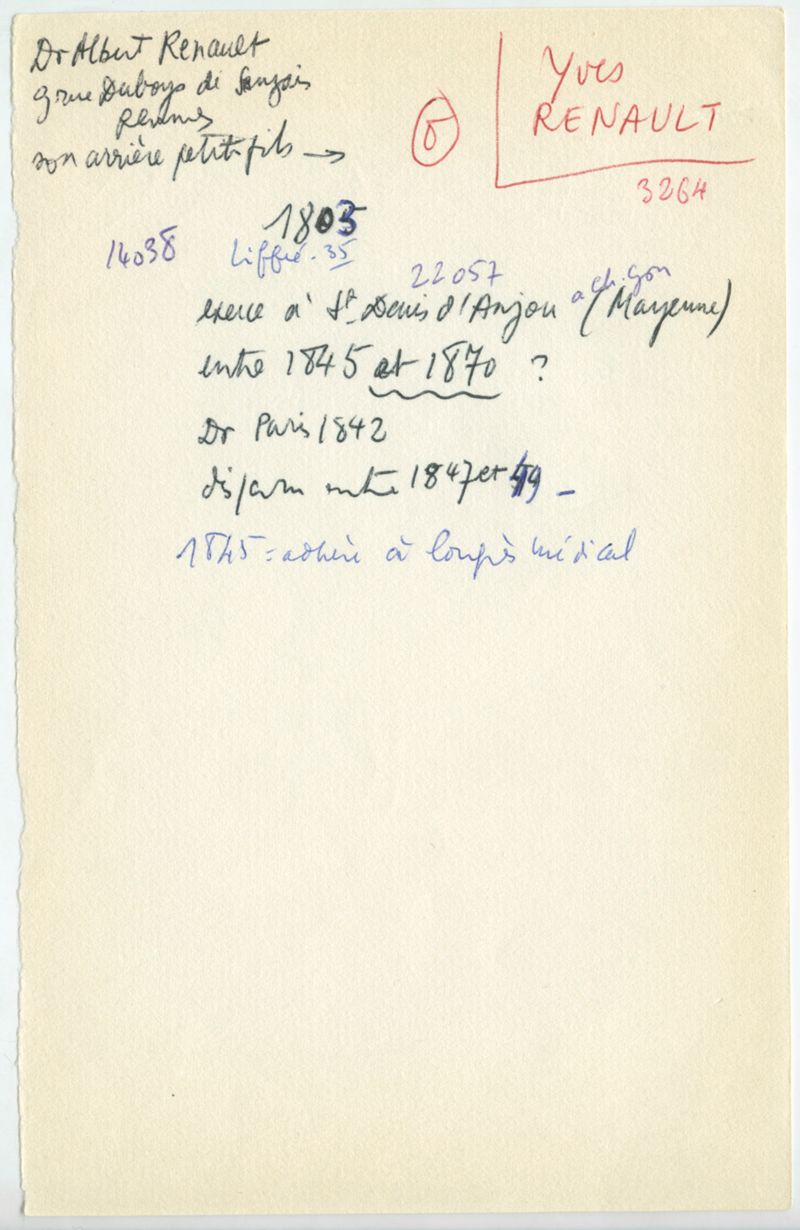 Dr Albert Renault
9 rue Duboys de
Rennes
son arrière petit fils →
6
Yves
RENAULT
3264
1803
14038 Liffré. 35
22057
exerce à St Denis d'Anjou (Mayenne)
entre 1845 et 1870 ?
Dr Paris 1842
entre 1847 et 49 –
1845 = adhère à Congrès médical